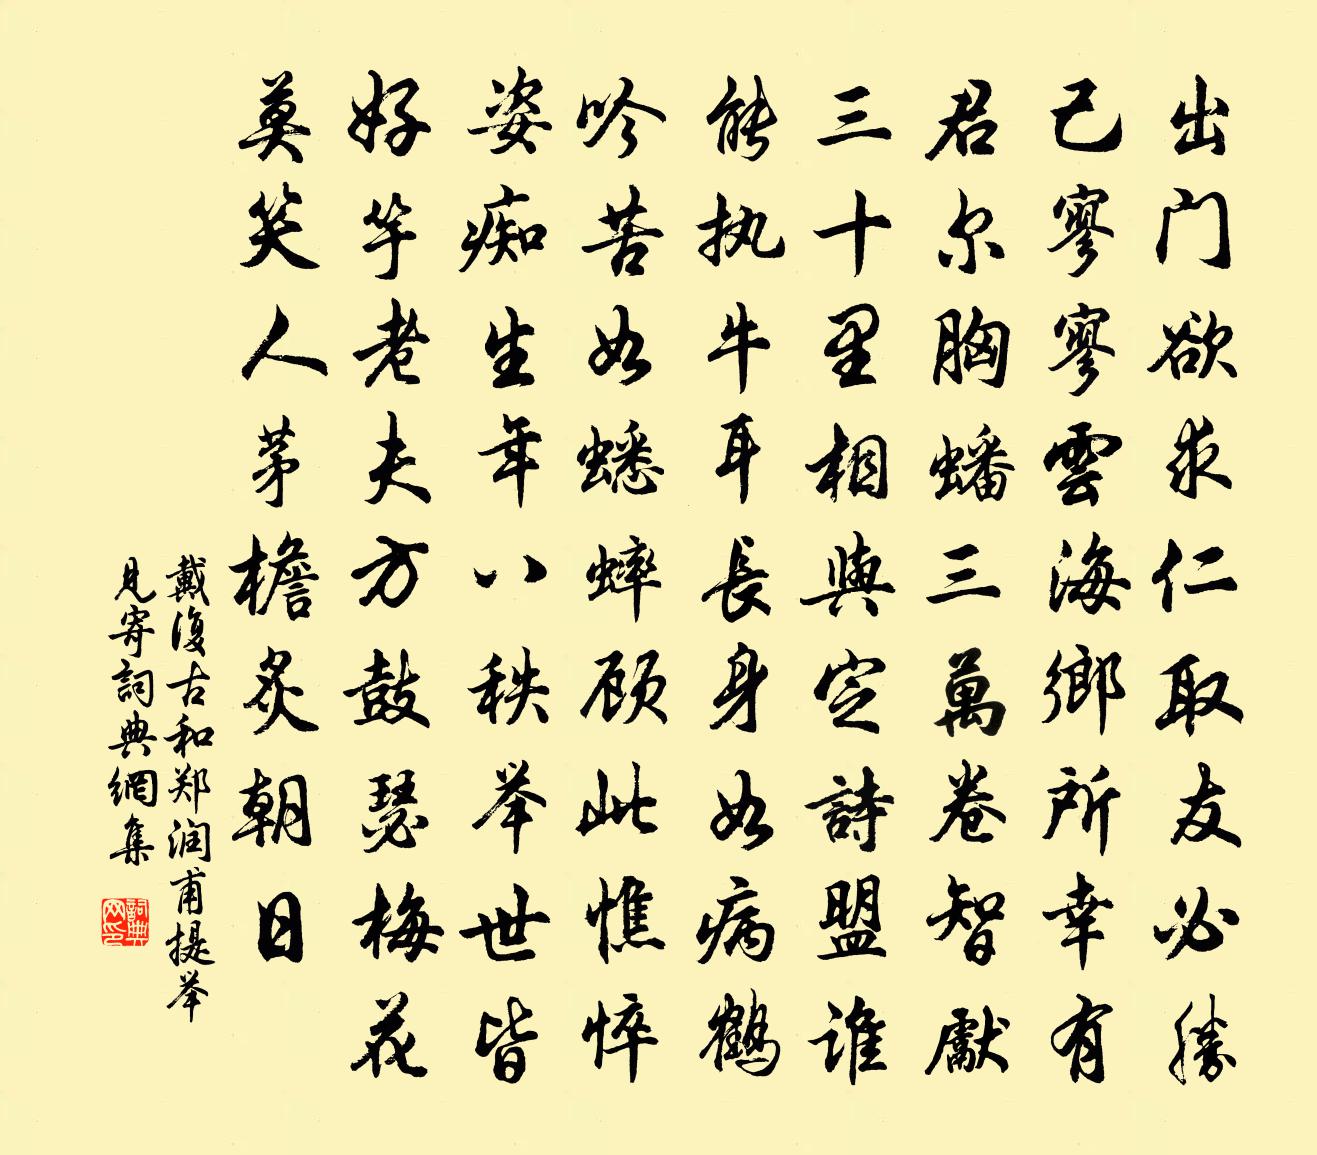 出门欲求仁取友必勝
己寥寥雲海鄉所幸有
君尔胸蟠三萬卷智獻
三十里相與定詩盟谁
能执牛耳長身如病鶴
吟苦如蟋蟀顾此憔悴
姿痴生年八秩举世皆
好竽老夫方鼓瑟梅花
莫笑人茅檐炙朝日
戴復古和郑润甫提举
見寄詞典網集
詞典网印